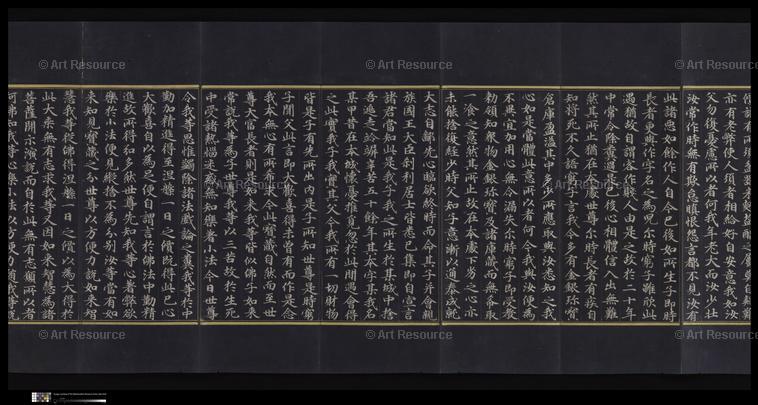 亦有老弊使人須者相給好自安意我如汝
父勿復憂慮所以者何我年老大而汝少壯
汝常作時無有欺怠瞋恨怨言都不見汝有
此諸惡如餘作人自今已後如所生子即時
長者更與作字名之為兒爾時窮子雖欣此
遇猶故自謂客作賤人由是之故於二十年
中常令除糞過是已後心相體信入出無難
然其所止猶在本處世尊爾時長者有疾自
知將死不久語窮子言我今多有金銀珍寶
倉庫盈溢其中多少所應取與汝悉知之我
心如是當體此意所以者何今我與汝便為
不異宜加用心無令漏失爾時窮子即受教
勅領知眾物金銀珍寶及諸庫藏而無悕取
一飡之意然其所止故在本處下劣之心亦
未能捨復經少時父知子意漸已通泰成就
大志自鄙先心臨欲終時而命其子并會親
族國王大臣剎利居士皆悉已集即自宣言
諸君當知此是我子我之所生於某城中捨
吾逃走伶俜辛苦五十餘年其本字某我名
某甲昔在本城懷憂推覓忽於此間遇會得
之此實我子我實其父今我所有一切財物
皆是子有先所出內是子所知世尊是時窮
子聞父此言即大歡喜得未曾有而作是念
我本無心有所希求今此寶藏自然而至世
尊大富長者則是如來我等皆似佛子如來
常說我等為子世尊我等以三苦故於生死
中受諸熱惱迷惑無知樂著小法今日世尊
令我等思惟蠲除諸法戲論之糞我等於中
勤加精進得至涅槃一日之價既得此已心
大歡喜自以為足便自謂言於佛法中勤精
進故所得弘多然世尊先知我等心著弊欲
樂於小法便見縱捨不為分別汝等當有如
來知見寶藏之分世尊以方便力說如來智
慧我等從佛得涅槃一日之價以為大得於
此大乘無有志求我等又因如來智慧為諸
菩薩開示演說而自於此無有志願所以者
何佛知我等心樂小法以方便力隨我等說
© Art Resource
© Art Resource
© Art Resource
© Art Resource
© Art Resource
© Art Resource
© Art Resource
© Art Resource
© Art Resource